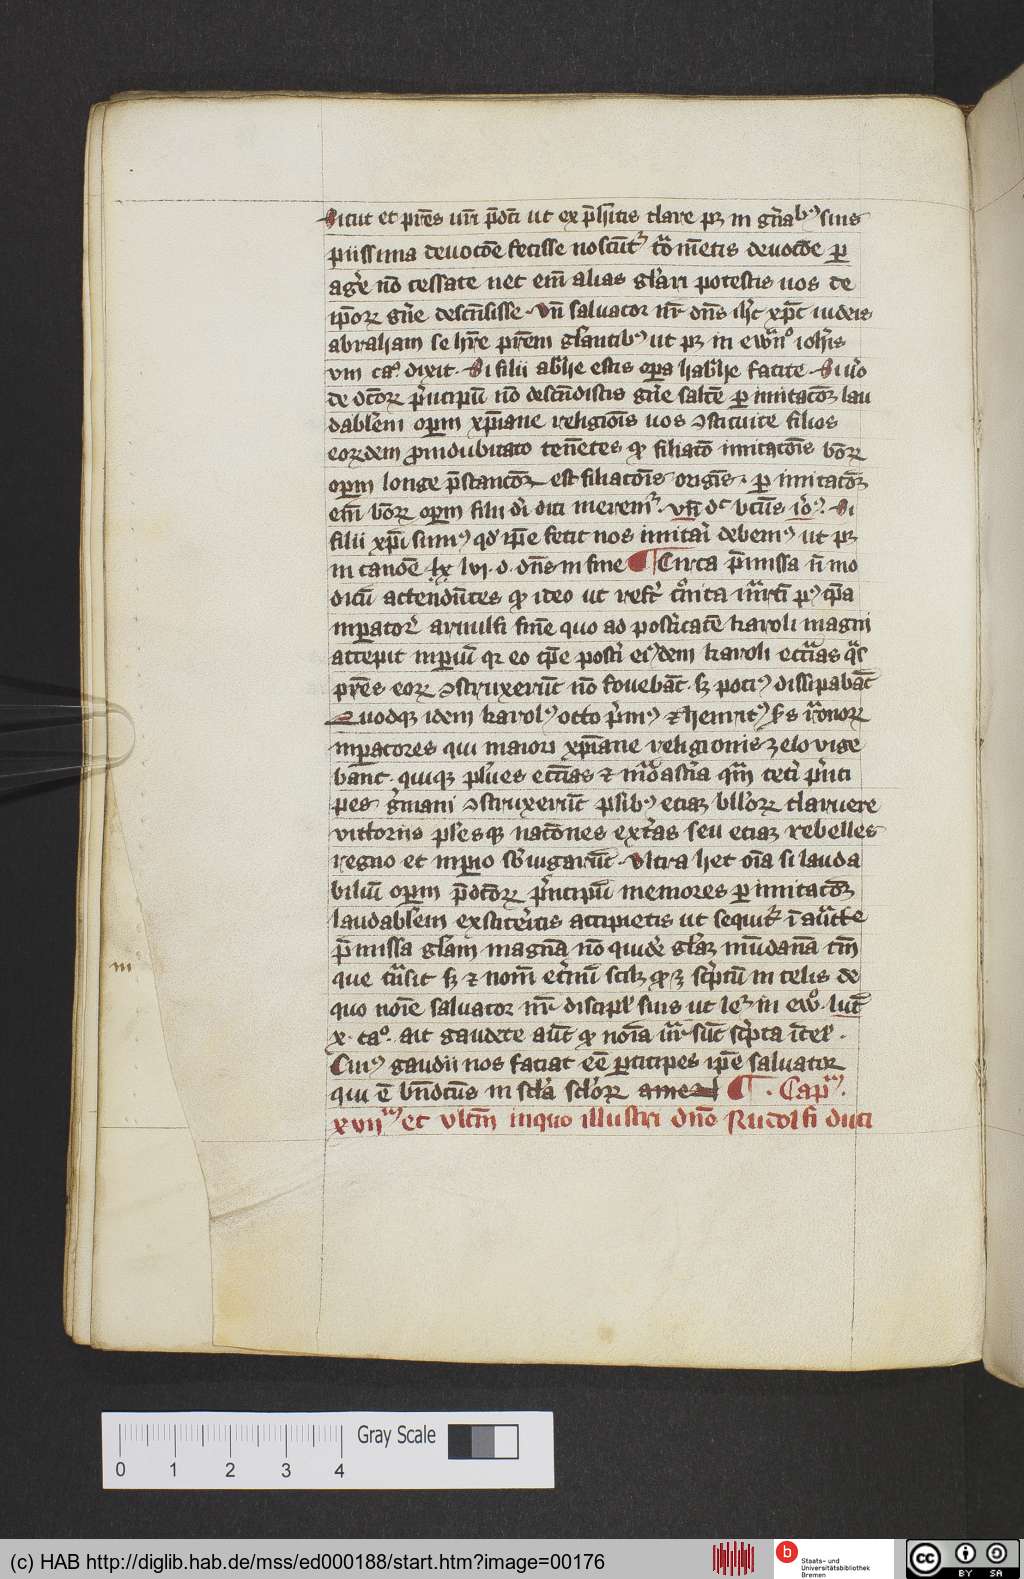 Sicut et pr̄es vr̄i p̄dc̄i ut ex p̄hītis clare pꝫ in gn̄abꝰ suis
piissima deuoc̄oe fecisse noscūtᷣ
agē nō cessate nec em̄ alias glārī potestis uos de
ip̄oꝝ gn̄e descn̄disse · Vn̄ saluator nr̄ dn̄s ih̄c xp̄c iudeis
abraham se hr̄e pr̄em glān̄tibꝰ ut pꝫ in ewāᵒ ioh̄is
viii caᵒ dixit · Si filii abh̄e estis oꝑa habh̄e facite · Si v̄o
de dc̄oꝝ p̄ncipū nō descn̄distis gn̄e saltē ꝑ imitac̄oꝫ lau
dabilem oꝑum xp̄iane religiōis uos ꝯstituite filios
eorꝫdem ꝓindubitato ten̄etes ꝙ filiac̄o imitac̄ois bōꝝ
oꝑum longe p̄stanc̄oꝝ est filiac̄ois origīs · ꝑ imitac̄oꝫ
em̄ bōꝝ oꝑum filii dī dici meremᷣ · Vn̄ dᶜ bt̄us ioᵒ · Si
filii xp̄i sumꝰ qd̄ ip̄e fecit nos imitarī debemꝰ ut pꝫ
in canōe lx lvi · d · dn̄s in fine ¶ Circa p̄missa n̄ mo
dicū attendn̄tes ꝙ ideo ut refᷣt
imꝑatoꝝ arnulfi fine quo ad post̄itatē karoli magni
accepit imꝑiū qr eo tp̄e post̄i eiꝰdem karoli ecc̄ias q̄s
pr̄es eoꝝ ꝯstruxerūt nō fouebāt · sꝫ pociꝰ dissipabāt
Quodqꝫ idem karolꝰ otto p̄mꝰ ⁊ henricꝰ
imꝑatores qui maiori xp̄iane religionis zelo vige
bant · quiqꝫ plures ecc̄ias ⁊ mo͞ast̄ia qm̄ cetī p̄nci
pes ḡmani ꝯstruxerūt plibꝰ eciaꝫ belloꝝ claruere
victoriis plesqꝫ nac̄ones ext̄as seu eciaꝫ rebelles
regno et imꝑio sb̄iugarūt · Vltra hec oīa si lauda
biliū oꝑum p̄dc̄oꝝ p̄ncipū memores ꝑ imitac̄oꝫ
laudabilem exstit̄itis accipietis ut sequitᷣ
p̄missa glām magnā nō quidē glāꝫ mūdanā tm̄
que tn̄sit sꝫ ⁊ nom̄ et̄nū scilꝫ ꝙ ꝫ sc̄ptū in celis de
quo noīe saluator nr̄ discipl̄ suis ut leᷣ in ewᵒ luc̄
x · caᵒ · ait gaudete aūt ꝙ noīa vr̄a sūt sc̄pta ī cel̄ ·
Cuiꝰ gaudii nos faciat eē ꝑticipes ip̄e saluator
qui ē bn̄dcūs in scl̄a scl̄oꝝ amen ¶ · Capᵐ ·
xviiᵐ et vltīm inquo illustri dn̄o Rudolfi duci
iii
0 1 2 3 4
Gray Scale
(c) HAB http://diglib.hab.de/mss/ed000188/start.htm?image=00176
Staats- und
Universitätsbibliothek
Bremen
cc BY SA